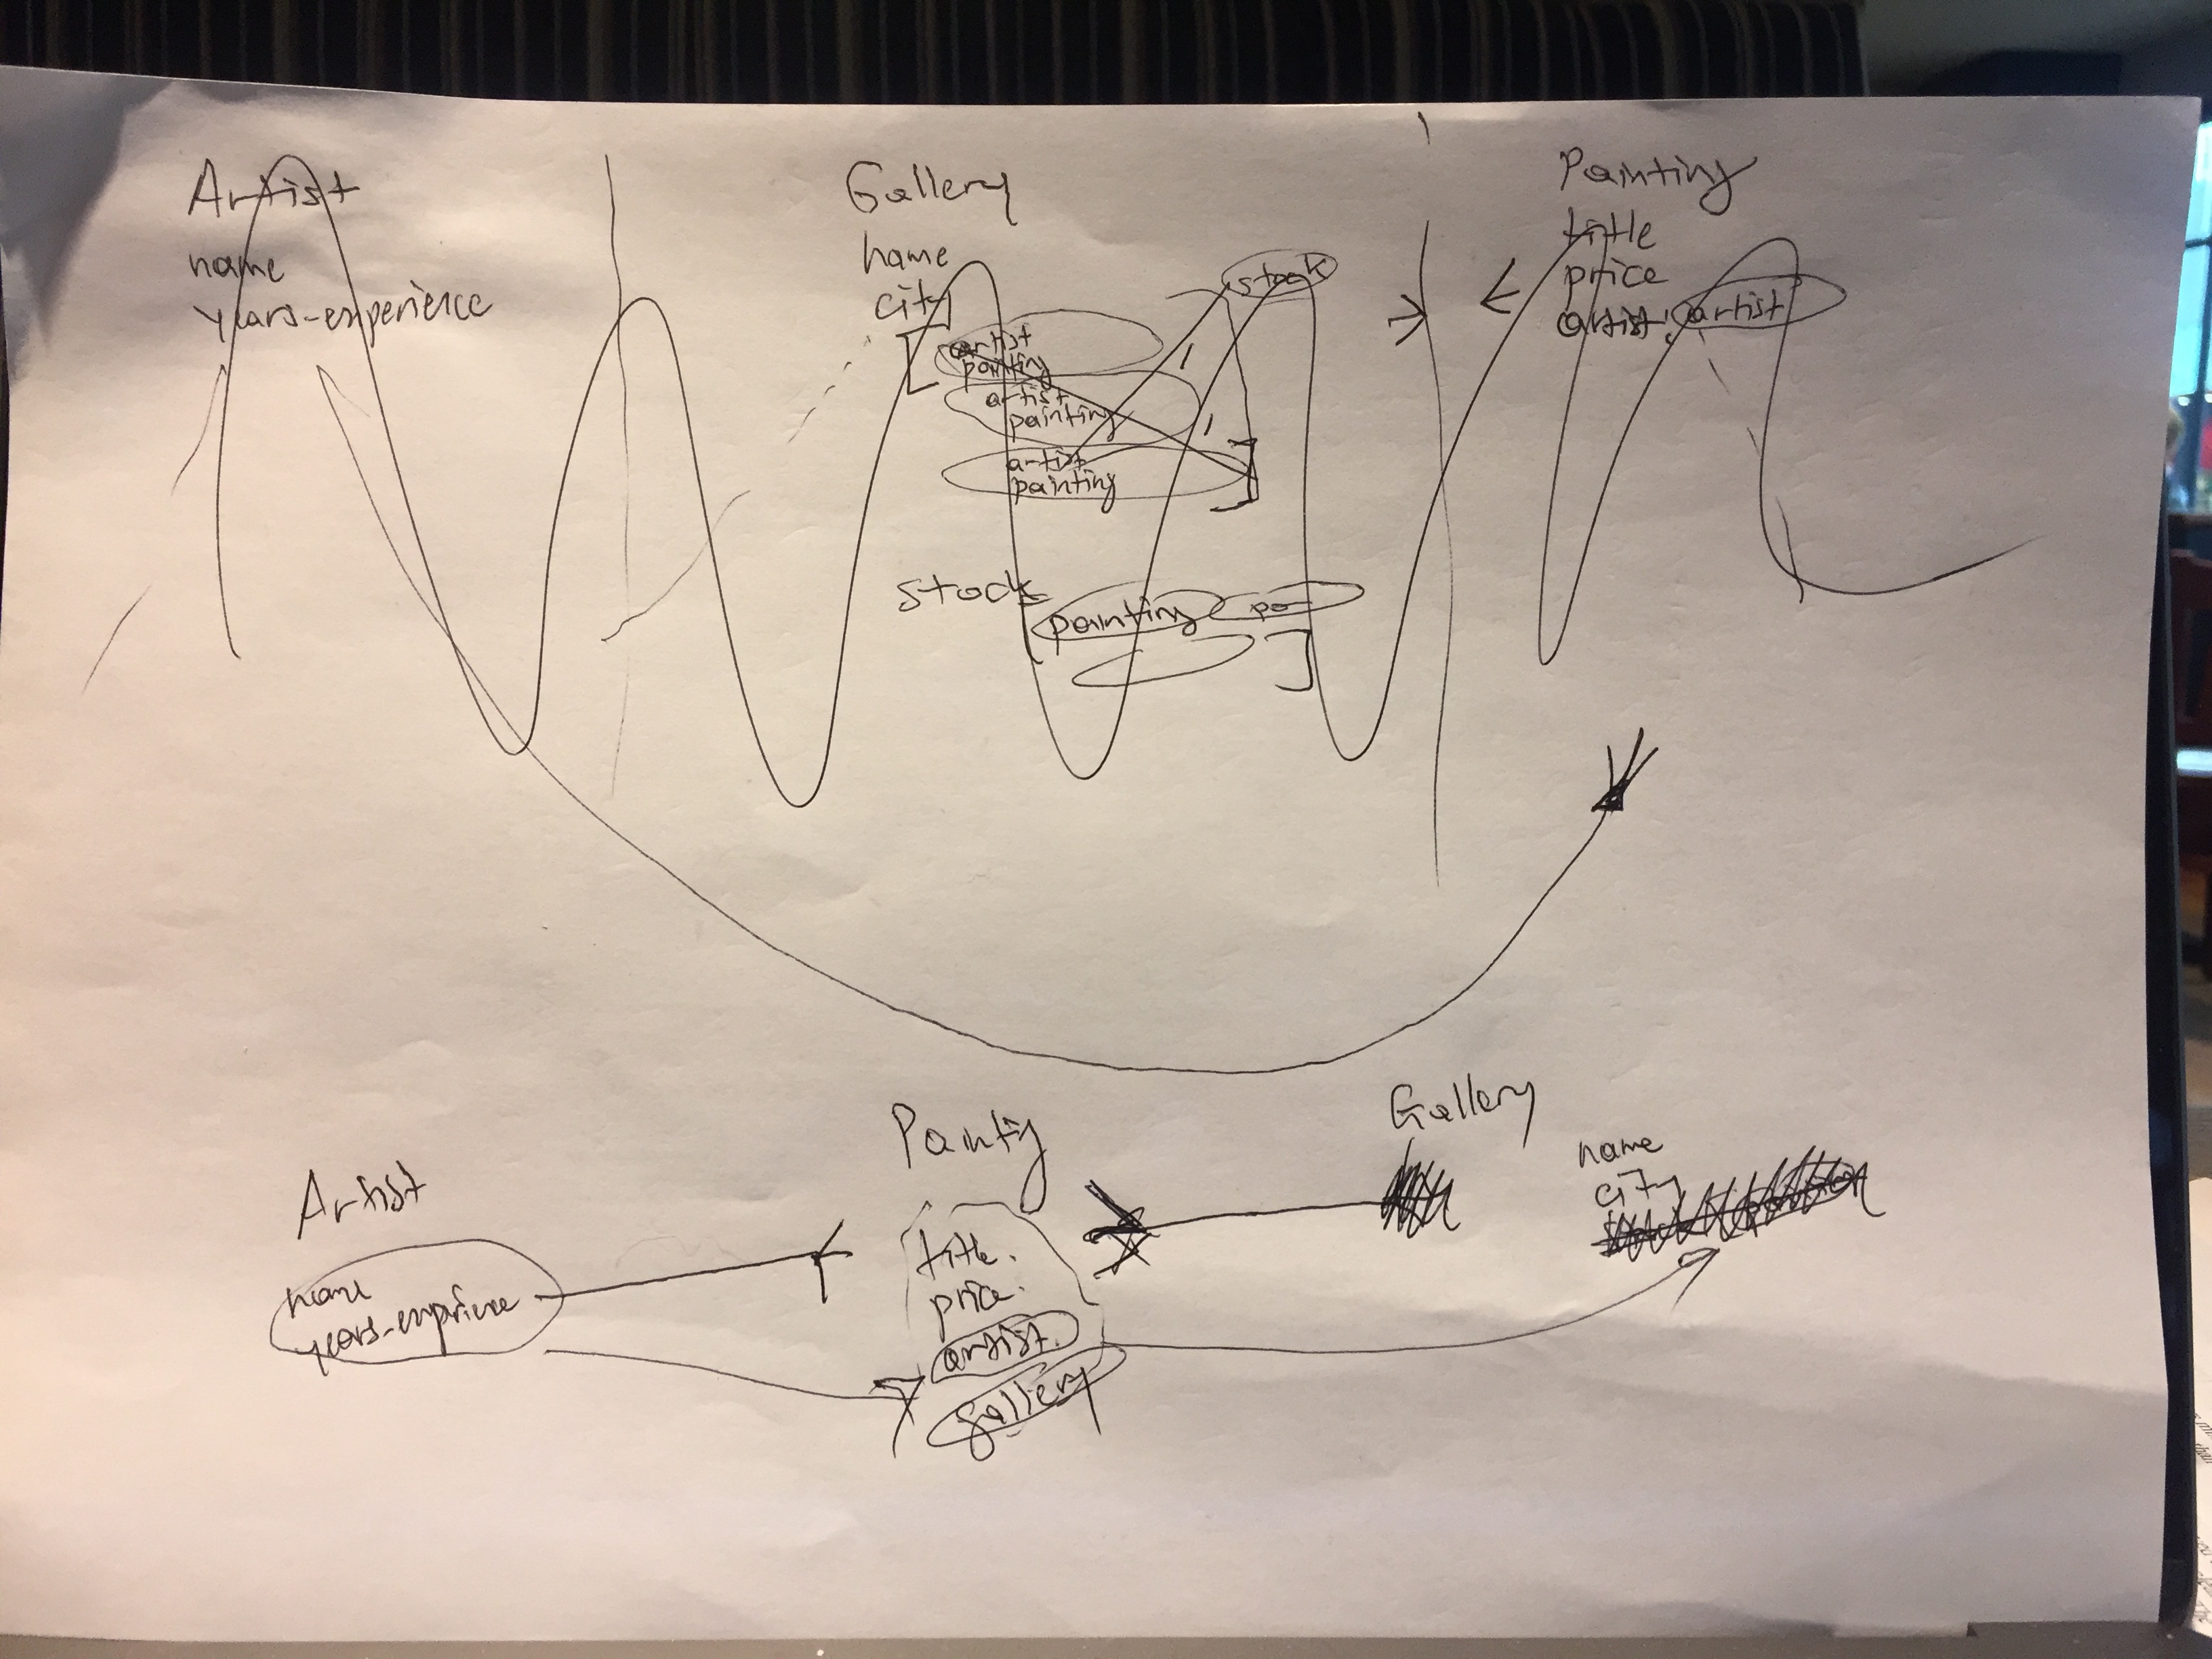 Artist
name
years-experience
Gallery
name
city
stock
artist
painting
artist
painting
artist
painting
stock
painting
pa
Painting
title
price
artist: artist
Artist
name
years-exprience
Paintig
title.
price.
artist.
gallery
Gallery
name
city